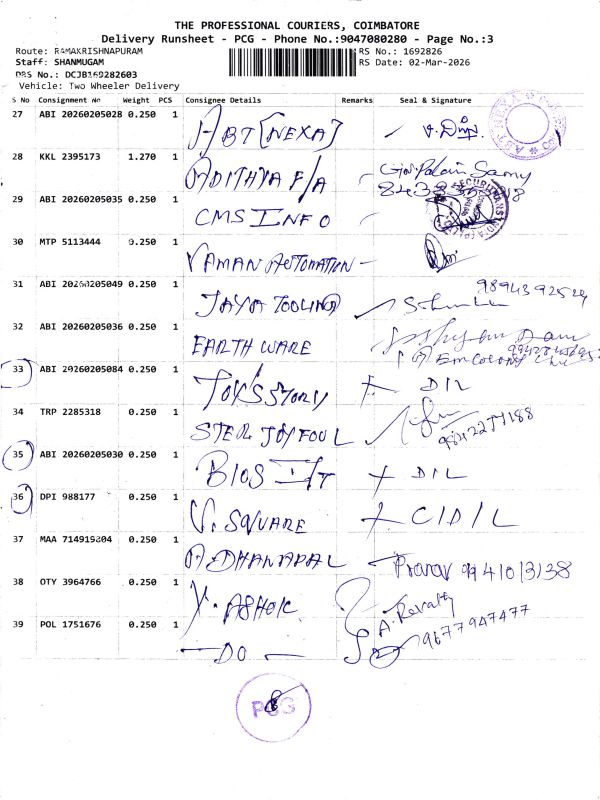 THE PROFESSIONAL COURIERS, COIMBATORE
Delivery Runsheet - PCG - Phone No.:9047080280 - Page No.:3
Route: RAMAKRISHNAPURAM RS No.: 1692826
Staff: SHANMUGAM RS Date: 02-Mar-2026
DRS No.: DCJB169282603
Vehicle: Two Wheeler Delivery
S No Consignment No Weight PCS Consignee Details Remarks Seal & Signature
27 ABI 20260205028 0.250 1 ABT [NEXA]
28 KKL 2395173 1.270 1 ADITHYA F/A
29 ABI 20260205035 0.250 1 CMS INFO
30 MTP 5113444 0.250 1 VAMAN AUTOMATION
31 ABI 20260205049 0.250 1 JAYA TOOLING 9894392524
32 ABI 20260205036 0.250 1 EARTH WARE
33 ABI 20260205084 0.250 1 TOYS STORY DIL
34 TRP 2285318 0.250 1 9842277188
35 ABI 20260205030 0.250 1 DIL
36 DPI 988177 0.250 1 V. SQUARE C/D/L
37 MAA 714915804 0.250 1 A. DHANAPAL Pranav
38 OTY 3964766 0.250 1 ASHOK A. Revathy
39 POL 1751676 0.250 1 DO 9677947477
PCG